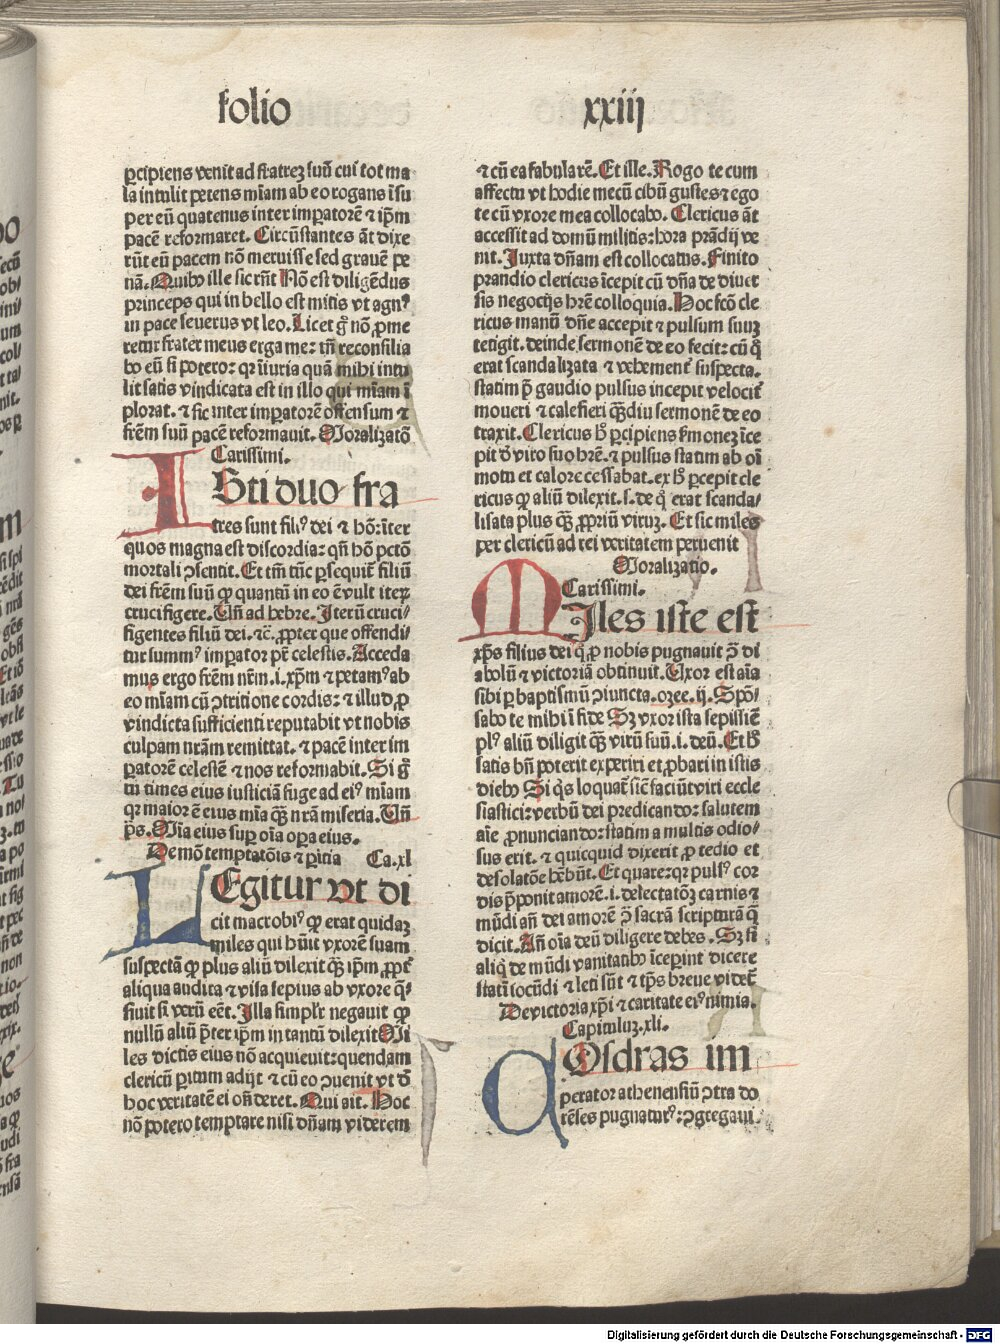 folio xxiij
ꝑcipiens venit ad fratreꝫ suū cui tot ma
la intulit petens mīam ab eo rogans īsu
per eū quatenus inter imꝑatorē ⁊ ip̄m
pacē reformaret. Circūstantes āt dixe
rūt eū pacem nō meruisse sed grauē pe
nā. Quibꝰ ille sic rn̄t Nō est diligēdus
princeps qui in bello est mitis vt agnꝰ
in pace seuerus vt leo. Licet gͦ nō ꝓme
retur frater meus erga me: tn̄ reconsilia
bo eū si potero: qꝛ iīuria quā mihi intu
lit satis vindicata est in illo qui mīam ī
plorat. ⁊ sic inter imꝑatorē offensum ⁊
frēm suū pacē reformauit. Moralizatō
Carissimi.
ISti duo fra
tres sunt filiꝰ dei ⁊ hō: īter
quos magna est discordia: qn̄ hō pctō
mortali ↄsentit. Et tm̄ tūc ꝑsequit᷑ filiū
dei frēm suū ꝙ quantū in eo ē vult iteꝝ
crucifigere. Vn̄ ad hebre. Iterū cruci⸗
figentes filiū dei. ⁊c̄. ꝓpter que offendi⸗
tur summꝰ imꝑator pr̄ celestis. Acceda
mus ergo frēm nr̄m .i. xp̄m ⁊ petamꝰ ab
eo mīam cū ↄtritione cordis: ⁊ illud ꝓ
vindicta sufficienti reputabit vt nobis
culpam nrām remittat. ⁊ pacē inter im
ꝑatorē celestē ⁊ nos reformabit. Si gͦ
tu times eius iusticiā fuge ad eiꝰ mīam
qꝛ maior ē eius mīa qꝫ̄ nrā miseria. Vn̄
p̄s. Mīa eius suꝑ oīa oꝑa eius.
De mō temptatōis ⁊ ꝑitia Ca.xl
LEgitur vt di
cit macrobiꝰ ꝙ erat quidaꝫ
miles qui hūit vxorē suam
suspectā ꝙ plus aliū dilexit qꝫ̄ ip̄m ꝓpt᷑
aliqua audita ⁊ visa sepius ab vxore q̄⸗
siuit si verū eēt. Illa simplr̄ negauit ꝙ
nullū aliū p̄ter ip̄m in tantū dilexit Mi
les dictis eius nō acquieuit: quendam
clericū ꝑitum adijt ⁊ cū eo ↄuenit vt ō
hoc veritatē ei on̄deret. Qui ait. Hoc
nō potero temptare nisi dn̄am viderem
⁊ cū ea fabularē. Et ille. Rogo te cum
affectu vt hodie mecū cibū gustes ⁊ ego
te cū vxore mea collocabo. Clericus āt
accessit ad domū militis: hora prādij ve
nit. Iuxta dn̄am est collocatus. Finito
prandio clericus īcepit cū dn̄a de diuer
sis negocijs hr̄e colloquia. Hoc fcō cle
ricus manū dn̄e accepit ⁊ pulsum suuꝫ
tetigit. deinde sermonē de eo fecit: cū q̄
erat scandalizata ⁊ vehement᷑ suspecta.
statim p̄ gaudio pulsus incepit velocit᷑
moueri ⁊ calefieri qꝫ̄diu sermonē de eo
traxit. Clericus hͦ ꝑcipiens ẜmoneꝫ īce
pit ō viro suo hr̄e. ⁊ pulsus statim ab oī
motu et calore cessabat. ex hͦ ꝑcepit cle
ricus ꝙ aliū dilexit. s. de q̄ erat scanda⸗
lisata plus qꝫ̄ ꝓpriū viruꝫ. Et sic miles
per clericū ad rei veritatem peruenit
Moralizatio.
Carissimi.
MIles iste est
xp̄s filius dei q̄ ꝓ nobis pugnauit ↄ̄ di
abolū ⁊ victoriā obtinuit. Vxor est aīa
sibi ꝑ baptismū ↄiuncta. ozee. ij. Spō⸗
sabo te mihi ī fide Sꝫ vxor ista sepissīe
plꝰ aliū diligit qꝫ̄ virū suū .i. deū. Et hͦ
satis bn̄ poterit experiri et ꝓbari in istis
diebꝰ Si q̄s loquat᷑ sic faciūt viri eccle
siastici: verbū dei predicando: salutem
aīe ꝓnunciando: statim a multis odio⸗
sus erit. ⁊ quicquid dixerit ꝓ tedio et
desolatōe hēbūt. Et quare: qꝛ pulsꝰ cor
dis p̄ponit amorē .i. delectatōꝫ carnis ⁊
mūdi an̄ dei amorē ↄ̄ sacrā scripturā q̄
dicit. An̄ oīa deū diligere debes. Sꝫ si
aliq̄ de mūdi vanitatibꝰ īceperint dicere
statī iocūdi ⁊ leti sūt ⁊ tp̄s breue videt᷑
De victoria xp̄i ⁊ caritate eiꝰ nimia.
Capituluꝫ .xli.
COsdras im
perator atheneñsiū ↄtra do
rēses pugnaturꝰ: ↄgregaui.